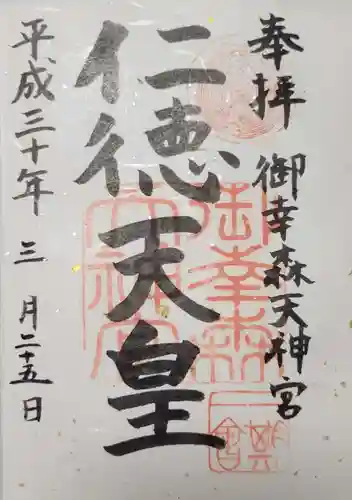 奉拝 御幸森天神宮
仁徳天皇
平成三十年 三月二十五日